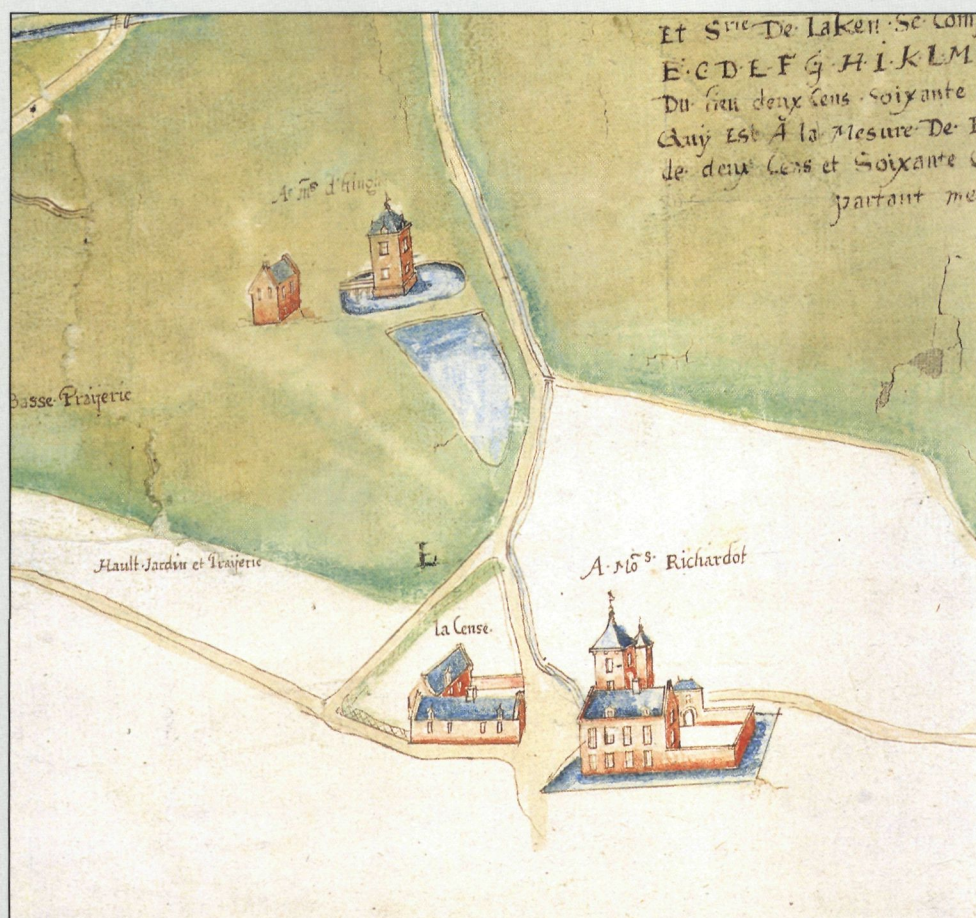 Et Srie De Laken Se Com
E·C·D·E·F·G·H·I·K·L·M
Du lieu deux Cens Soixante
Quÿ Est À la Mesure De
de deux Cens et Soixante
partant me
A mrs
Basse·Praÿerie
Hault·Jardin et Praÿerie
L
A·Mõs· Richardot
la Cense·